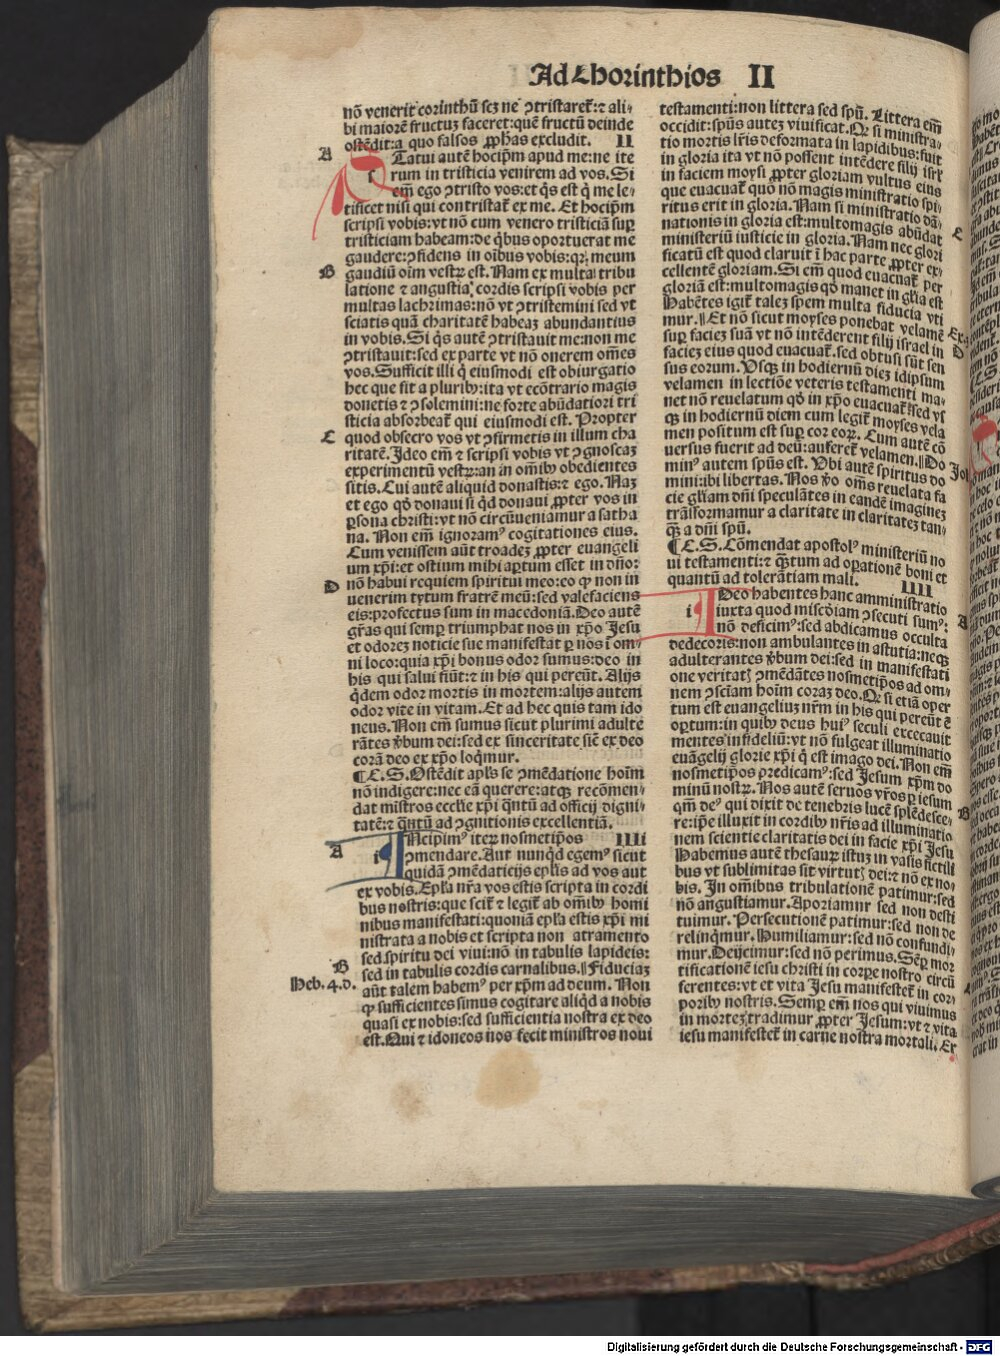 Ad Chorinthios II
nō venerit corinthū scꝫ ne ꝯtristaret᷑:⁊ ali⸗
bi maiorē fructuꝫ faceret:quē fructū deinde
ostēdit:a quo falsos ꝓphas excludit. II
A
s Tatui autē hocipm̄ apud me:ne ite
rum in tristicia venirem ad vos. Si
em̄ ego ꝯtristo vos:et qͥs est qͥ me le⸗
tificet nisi qui contristat᷑ ex me. Et hocipm̄
scripsi vobis:vt nō cum venero tristiciā suꝑ
tristiciam habeam:de qͥbus oportuerat me
gaudere:ꝯfidens in oībus vobis:qꝛ meum
B
gaudiū oīm vestrꝝ est. Nam ex multa tribu
latione ⁊ angustia cordis scripsi vobis per
multas lachrimas:nō vt ꝯtristemini sed vt
sciatis quā charitatē habeaꝫ abundantius
in vobis. Si qͥs autē ꝯtristauit me:non me
ꝯtristauit:sed ex parte vt nō onerem om̄es
vos. Sufficit illi qͥ eiusmodi est obiurgatio
hec que fit a pluribꝰ:ita vt ecōtrario magis
donetis ⁊ ꝯsolemini:ne forte abūdatiori tri
sticia absorbeat᷑ qui eiusmodi est. Propter
C
quod obsecro vos vt ꝯfirmetis in illum cha
ritatē. Ideo em̄ ⁊ scripsi vobis vt ꝯgnoscaꝫ
experimentū vestrꝝ:an in om̄ibꝰ obedientes
sitis. Cui autē aliquid donastis:⁊ ego. Naꝫ
et ego qd̓ donaui si qͥd donaui ꝓpter vos in
ꝑsona christi:vt nō circūueniamur a satha
na. Non em̄ ignoramꝰ cogitationes eius.
Cum venissem aūt troadeꝫ ꝓpter euangeli
um xp̄i:et ostium mihi aꝑtum esset in dn̄o:
D
nō habui requiem spiritui meo:eo ꝙ non in
uenerim tytum fratrē meū:sed valefaciens
eis:profectus sum in macedoniā. Deo autē
gr̄as qui semꝑ triumphat nos in xp̄o Jesu
et odoreꝫ noticie sue manifestat ꝑ nos ī om⸗
ni loco:quia xp̄i bonus odor sumus:deo in
his qui salui fiūt:⁊ in his qui pereūt. Alijs
qͥdem odor mortis in mortem:alijs autem
odor vite in vitam. Et ad hec quis tam ido
neus. Non em̄ sumus sicut plurimi adulte
rātes v̓bum dei:sed ex sinceritate sic̄ ex deo
corā deo ex xp̄o loqͥmur.
¶C.S. Ostēdit apl̓s se ꝯmēdatione hoīm
nō indigere:nec eā querere:atqꝫ recōmen⸗
dat mīstros eccl̓ie xp̄i qͣntū ad officij digni⸗
tatē:⁊ qͣntū ad ꝯgnitionis excellentiā.
A
i Ncipimꝰ iteꝝ nosmetip̄os IIIi
ꝯmendare. Aut nunqͥd egemꝰ sicut
quidā ꝯmēdaticijs epl̓is ad vos aut
ex vobis. Epl̓a nr̄a vos estis scripta in cordi
bus nostris:que scit᷑ ⁊ legit᷑ ab om̄ibꝰ homi
nibus manifestati:quoniā epl̓a estis xp̄i mi
nistrata a nobis et scripta non atramento
sed spiritu dei viui:nō in tabulis lapideis:
B
sed in tabulis cordis carnalibus.‖Fiduciaꝫ
Heb. 4.d.
aūt talem habemꝰ per xp̄m ad deum. Non
ꝙ sufficientes simus cogitare aliqͥd a nobis
quasi ex nobis:sed sufficientia nostra ex deo
est. Qui ⁊ idoneos nos fecit ministros noui
testamenti:non littera sed spū. Littera em̄
occidit:spūs auteꝫ viuificat. Qꝛ si ministra⸗
tio mortis lr̄is deformata in lapidibus:fuit
in gloria ita vt nō possent intēdere filij isrl̓
in faciem moysi ꝓpter gloriam vultus eius
que euacuat᷑ quō nō magis ministratio spi⸗
ritus erit in gloria. Nam si ministratio dā⸗
nationis in gloria est:multomagis abūdat
C
ministeriū iusticie in gloria. Nam nec glori
ficatū est quod claruit ī hac parte ꝓpter ex⸗
cellentē gloriam. Si em̄ quod euacuat᷑ per
gloriā est:multomagis qd̓ manet in gl̓ia est
Habētes igit᷑ taleꝫ spem multa fiducia vti
mur.‖Et nō sicut moyses ponebat velamē
Ex.
suꝑ facieꝫ suā vt nō intēderent filij israel in
D
facieꝫ eius quod euacuat᷑. sed obtusi sūt sen
sus eorum. Vsqꝫ in hodiernū dieꝫ idipsum
velamen in lectiōe veteris testamenti ma⸗
net nō reuelatum qd̓ in xp̄o euacuat᷑ sed vs
qꝫ in hodiernū diem cum legit᷑ moyses vela
men positum est suꝑ cor eoꝝ. Cum autē cō
uersus fuerit ad deū:auferet᷑ velamen.‖Do
Joh
minꝰ autem spūs est. Vbi autē spiritus do
mini:ibi libertas. Nos v̓o om̄s reuelata fa
cie gl̓iam dn̄i speculātes in eandē imagineꝫ
trāsformamur a claritate in claritateꝫ tan⸗
qͣꝫ a dn̄i spū.
¶C.S. Cōmendat apostolꝰ ministeriū no
ui testamenti:⁊ qͣꝫtum ad oꝑationē boni et
quantū ad tolerātiam mali. IIII
i Deo habentes hanc amministratio
A
iuxta quod misc̄diam ꝯsecuti sumꝰ:
nō deficimꝰ:sed abdicamus occulta
dedecoris:non ambulantes in astutia:neqꝫ
adulterantes v̓bum dei:sed in manifestati
one veritatꝭ ꝯmēdātes nosmetip̄os ad om⸗
nem ꝯsciam hoīm coraꝫ deo. Qꝛ si etiā oper
tum est euangeliuꝫ nr̄m in his qui pereūt ē
opertum:in quibꝰ deus huiꝰ seculi excecauit
mentes infideliū:vt nō fulgeat illuminatio
euāgelij glorie xp̄i qͥ est imago dei. Non em̄
nosmetip̄os predicamꝰ:sed Jesum xp̄m do
minū nostrꝝ. Nos autē seruos vr̄os ꝑ iesum
B
qm̄ deꝰ qui dixit de tenebris lucē splēdesce⸗
re:ip̄e illuxit in cordibꝰ nr̄is ad illuminatio
nem scientie claritatis dei in facie xp̄i Jesu
Habemus autē thesauꝝ istuꝫ in vasis fictili
bus vt sublimitas sit virtutꝭ dei:⁊ nō ex no⸗
bis. In om̄ibus tribulationē patimur:sed
nō angustiamur. Aporiamur sed non desti
tuimur. Persecutionē patimur:sed non de
relinqͥmur. Humiliamur:sed nō confundi⸗
mur. Deijcimur:sed nō perimus. Sēꝑ mor
tificationē iesu christi in corꝑe nostro circū
ferentes:vt et vita Jesu manifestet᷑ in cor⸗
poribꝰ nostris. Semꝑ em̄ nos qui viuimus
in morteꝫ tradimur ꝓpter Jesum:vt ⁊ vita
iesu manifestet᷑ in carne nostra mortali. Er
Digitalisierung gefördert durch die Deutsche Forschungsgemeinschaft - DFG